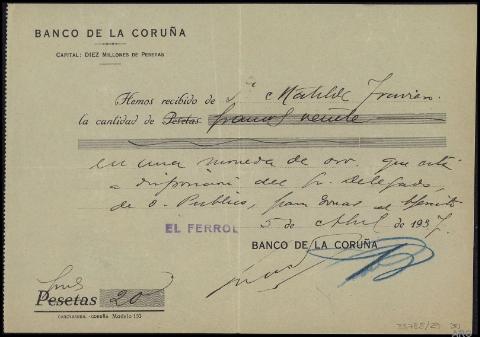 BANCO DE LA CORUÑA
CAPITAL: DIEZ MILLONES DE PESETAS
Hemos recibido de Matilde
la cantidad de Pesetas francos veinte
en una moneda de oro, que está
a disposición del Sr. Delegado,
de O. Publico, para donar al Ejército
EL FERROL 5 de Abril de 1937.
BANCO DE LA CORUÑA
Pesetas 20
CORUÑA Modelo 150